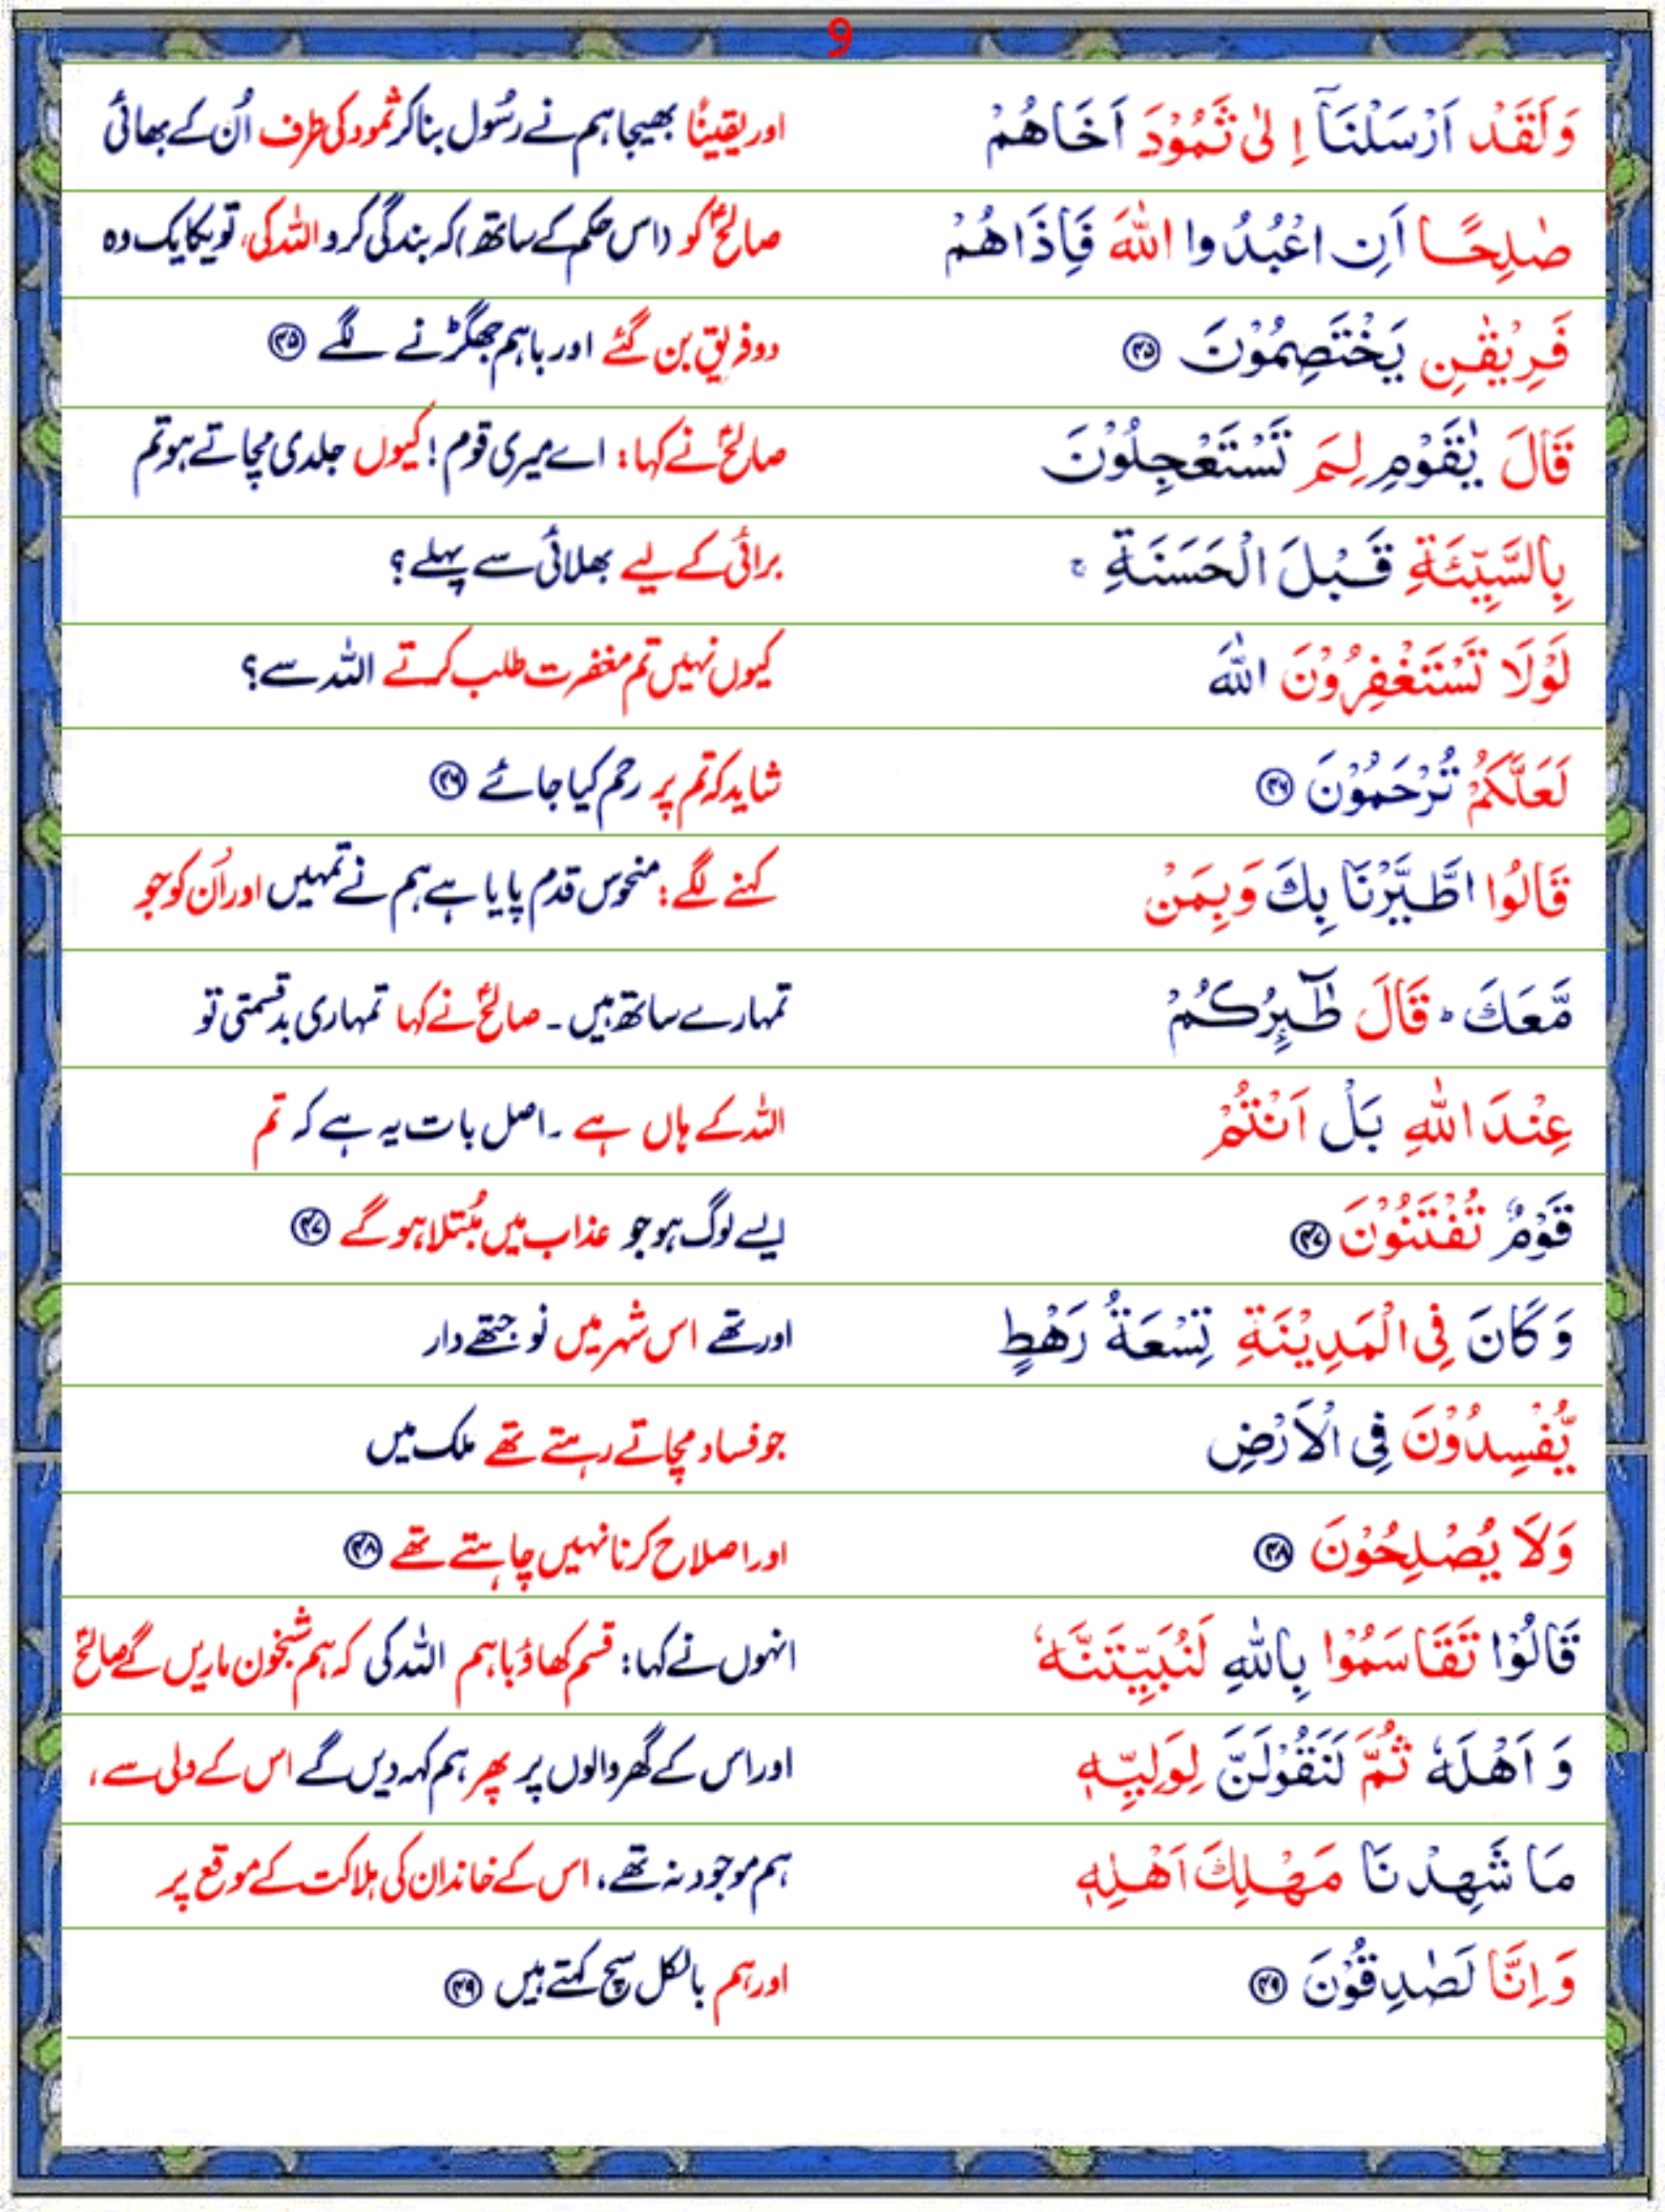 9
وَلَقَدْ اَرْسَلْنَاۤ اِلٰى ثَمُوْدَ اَخَاهُمْ اور یقیناً بھیجا ہم نے رسُول بنا کر ثمود کی طرف اُن کے بھائی
صٰلِحًا اَنِ اعْبُدُوا اللّٰهَ فَاِذَا هُمْ صالحؑ کو (اس حکم کے ساتھ) کہ بندگی کرو اللہ کی، تو یکایک وہ
فَرِيْقٰنِ يَخْتَصِمُوْنَ ﴿۴۵﴾ دو فریق بن گئے اور باہم جھگڑنے لگے ﴿۴۵﴾
قَالَ يٰقَوْمِ لِمَ تَسْتَعْجِلُوْنَ صالحؑ نے کہا: اے میری قوم! کیوں جلدی مچاتے ہو تم
بِالسَّيِّئَةِ قَبْلَ الْحَسَنَةِ ۚ برائی کے لیے بھلائی سے پہلے؟
لَوْلَا تَسْتَغْفِرُوْنَ اللّٰهَ کیوں نہیں تم مغفرت طلب کرتے اللہ سے؟
لَعَلَّكُمْ تُرْحَمُوْنَ ﴿۴۶﴾ شاید کہ تم پر رحم کیا جائے ﴿۴۶﴾
قَالُوا اطَّيَّرْنَا بِكَ وَبِمَنْ کہنے لگے: منحوس قدم پایا ہے ہم نے تمہیں اور اُن کو جو
مَّعَكَ ؕ قَالَ طٰٓئِرُكُمْ تمہارے ساتھ ہیں۔ صالحؑ نے کہا تمہاری بدقسمتی تو
عِنْدَ اللّٰهِ بَلْ اَنْتُمْ اللہ کے ہاں ہے۔ اصل بات یہ ہے کہ تم
قَوْمٌ تُفْتَنُوْنَ ﴿۴۷﴾ ایسے لوگ ہو جو عذاب میں مُبتلا ہو گے ﴿۴۷﴾
وَ كَانَ فِى الْمَدِيْنَةِ تِسْعَةُ رَهْطٍ اور تھے اس شہر میں نو جتھے دار
يُّفْسِدُوْنَ فِى الْاَرْضِ جو فساد مچاتے رہتے تھے ملک میں
وَلَا يُصْلِحُوْنَ ﴿۴۸﴾ اور اصلاح کرنا نہیں چاہتے تھے ﴿۴۸﴾
قَالُوْا تَقَاسَمُوْا بِاللّٰهِ لَنُبَيِّتَنَّهٗ انہوں نے کہا: قسم کھاؤ باہم اللہ کی کہ ہم شبخون ماریں گے صالحؑ
وَ اَهْلَهٗ ثُمَّ لَنَقُوْلَنَّ لِوَلِيِّهٖ اور اس کے گھر والوں پر پھر ہم کہہ دیں گے اس کے ولی سے،
مَا شَهِدْنَا مَهْلِكَ اَهْلِهٖ ہم موجود نہ تھے، اس کے خاندان کی ہلاکت کے موقع پر
وَ اِنَّا لَصٰدِقُوْنَ ﴿۴۹﴾ اور ہم بالکل سچ کہتے ہیں ﴿۴۹﴾